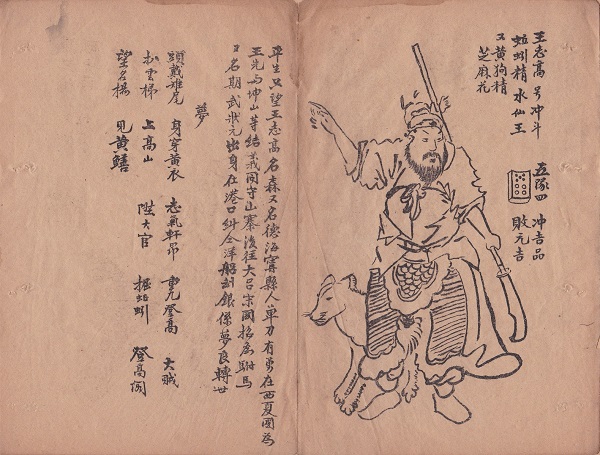 王志高 号 冲斗
蚯蚓精 水仙王
又黄狗精
芝麻花
五隊四 冲吉品
敗元吉
平生只望王志高名森又名德海寗縣人單刀有勇在西夏國為
王先与坤山等結義同守山寨後往大吕宋國招為駙馬
又名期武狀元出身在港口糾仝洋船刦銀係夢良轉世
夢
頭戴雉尾 身穿黃衣 志氣軒昂 重九登高 大賊
扒雲梯 上高山 陞大官 掘蚯蚓 登高閣
望名揚 見黄鱔